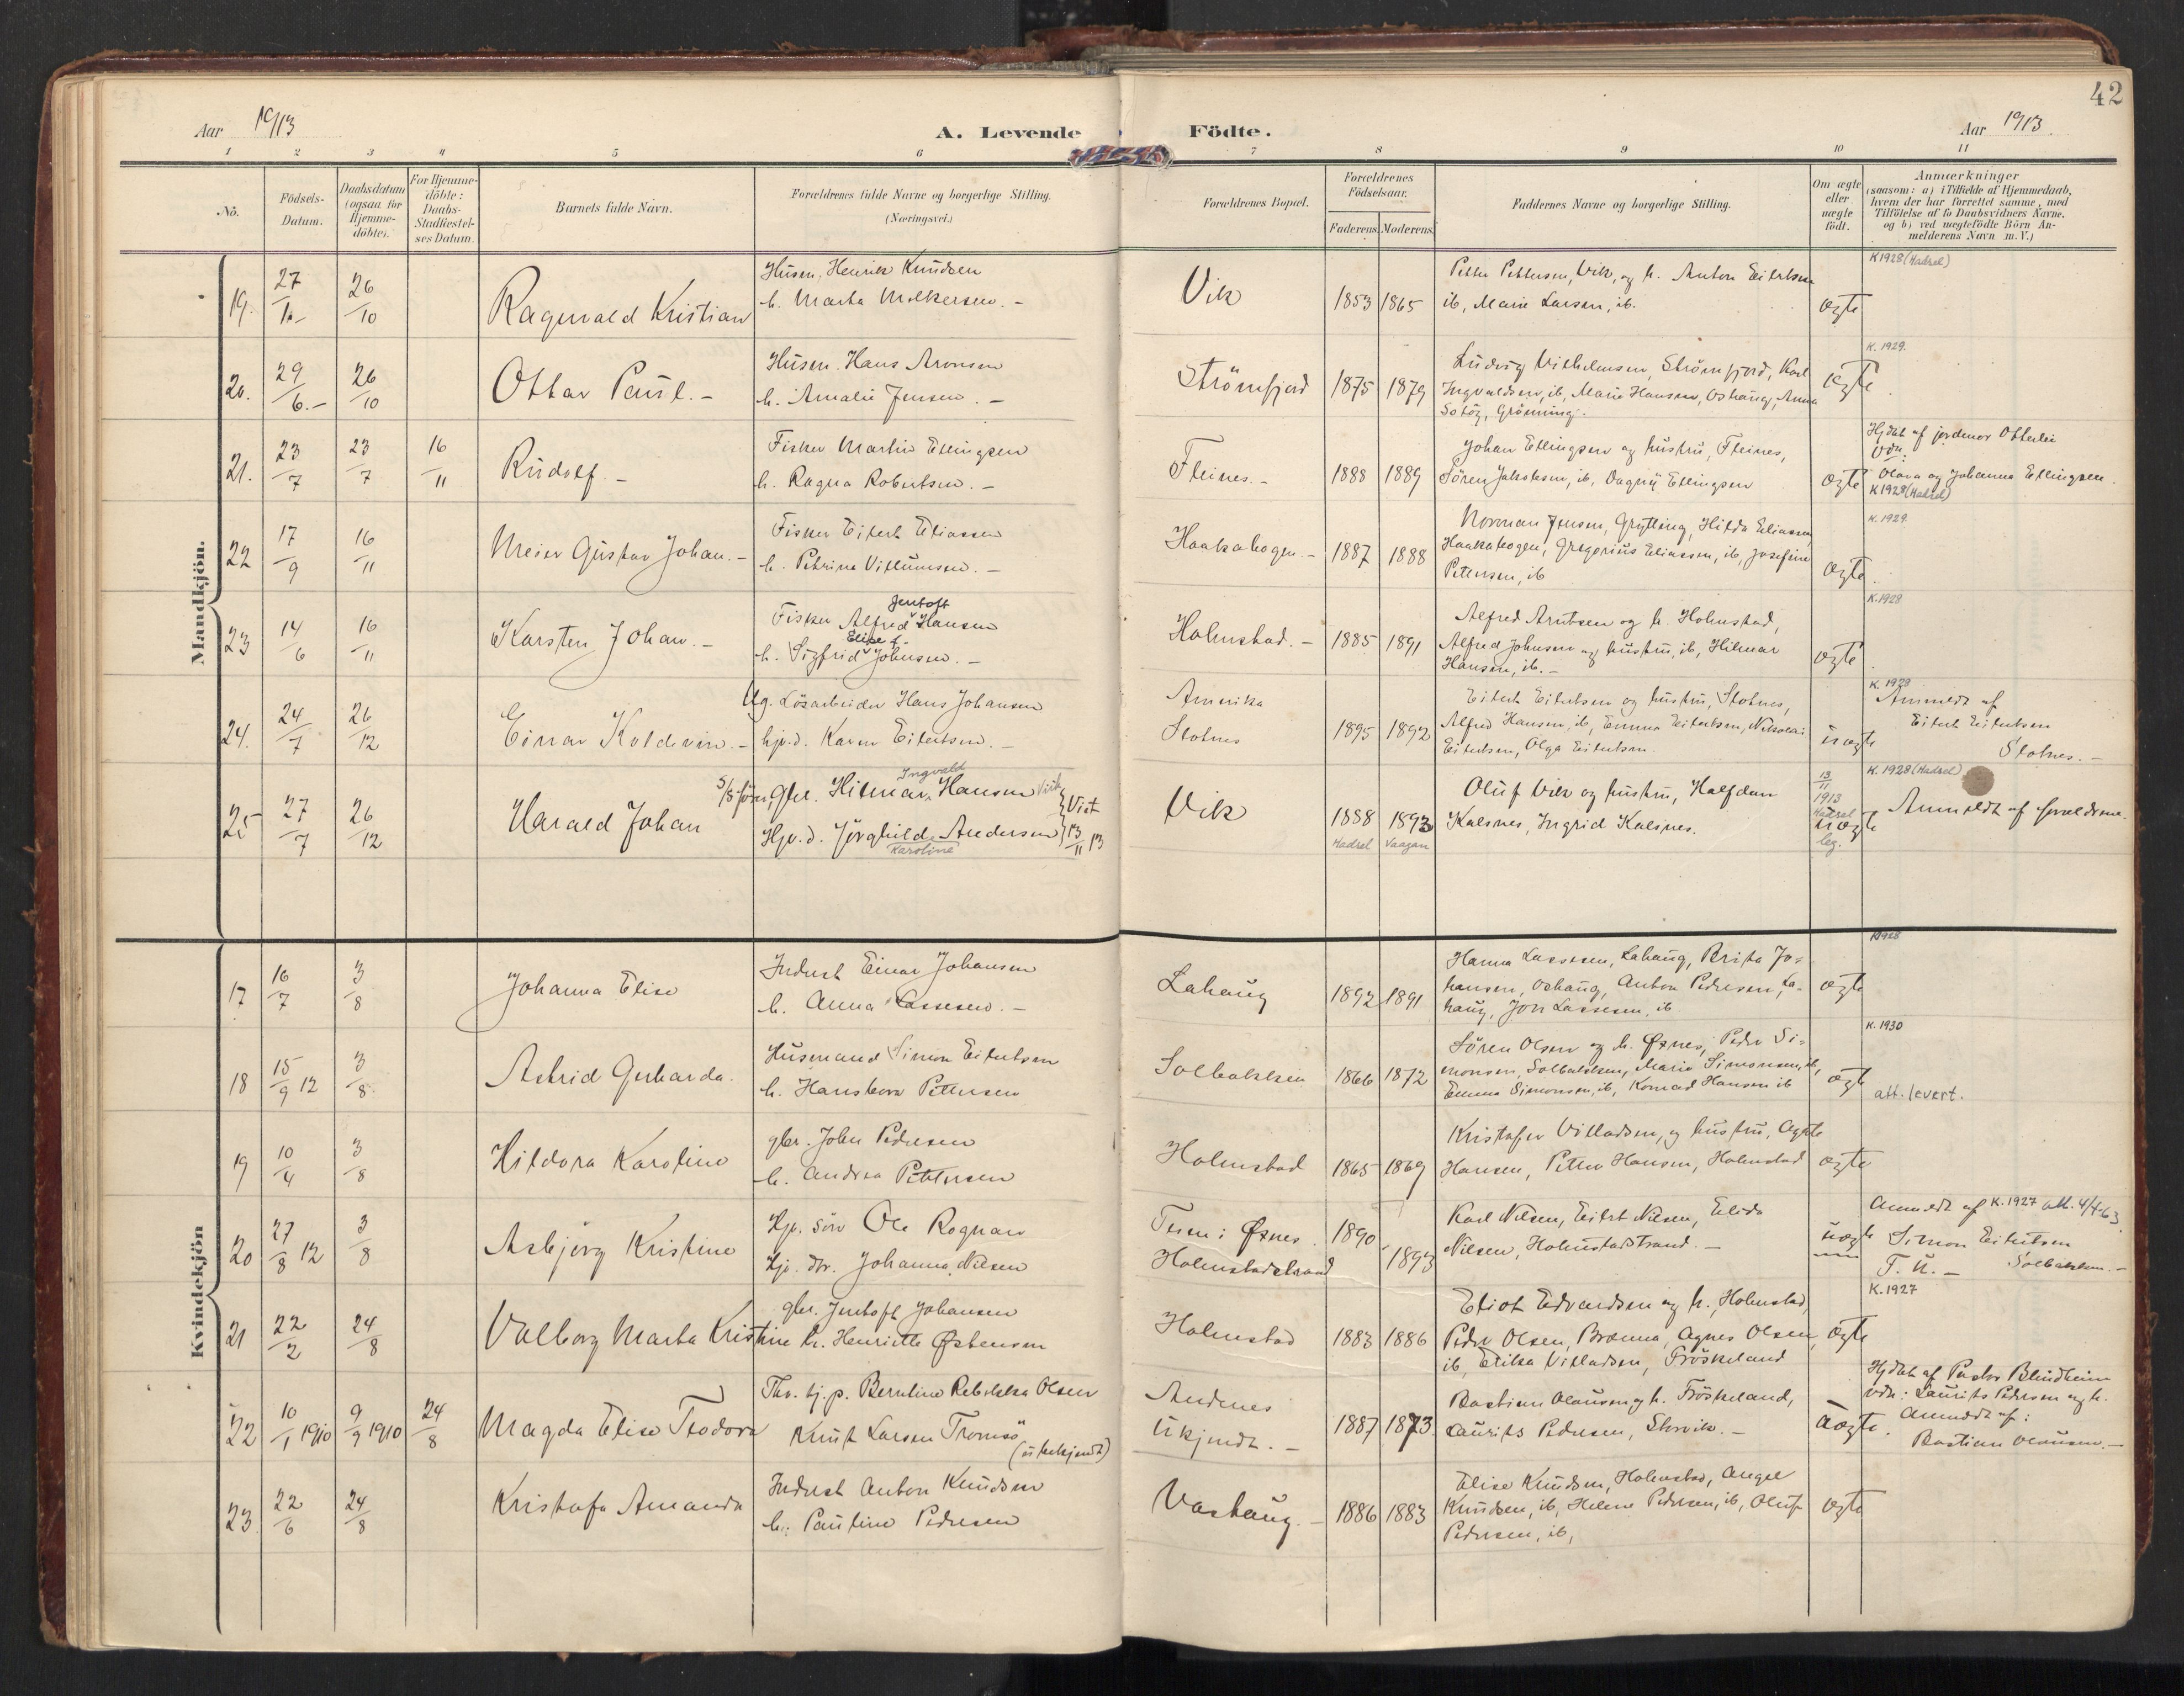 42
Aar 1913
A. Levende Födte.
Aar 1913.
1 2 3 4 5 6 7 8 9 10 11
No.
Födsels-
Datum.
Daabsdatum
(ogsaa for
Hjemme-
döbte).
For Hjemme-
döbte:
Daabs-
Stadfæstel-
ses Datum.
Barnets fulde Navn.
Forældrenes fulde Navne og borgerlige Stilling.
(Næringsvei.)
Forældrenes Bopæl.
Forældrenes
Födselsaar.
Faderens. Moderens.
Faddernes Navne og borgerlige Stilling.
Om ægte
eller
uægte
födt.
Anmærkninger
(saasom: a) i Tilfælde af Hjemmedaab,
hvem der har forrettet samme, med
Tilföielse af to Daabsvidners Navne.
og b) ved uægtefödte Börn An-
melderens Navn m. V.)
Mandkjön.
19. 27/10 26/10 Ragnvald Kristian
Husm. Henrik Knudsen
h. Marta Melkersen. -
Vik 1853 1865
Petter Pettersen, Vik, og h. Anton Eilertsen
ib, Marie Larsen, ib.
ægte
K1928 (Hadsel)
20. 29/6.- 26/10 Ottar Paul. -
Husm. Hans Aronsen
h. Amalie Jensen. -
Strömfjord 1875 1879
Ludvig Vilhelmsen, Strömfjord, Karl
Ingvaldsen, ib, Marie Hansen, Oshaug, Anna
Grönning.
ægte
K. 1929.
21. 23/7 23/7 16/11 Rudolf. -
Fisker Martin Ellingsen
h. Ragna Robertsen. -
Fleines. - 1888 1889
Johan Ellingsen og hustru, Fleines,
Sören Jakobsen, ib, Dagny Ellingsen
ægte
Hjdbt af jordmor Otterlei
Vdn:
Olava og Johanna Ellingsen.
K1928 (Hadsel)
22 17/9 16/11 Meier Gustav Johan. -
Fisker Eilert Eliassen
h. Petrine Villumsen. -
Haakabogen. - 1887 1888
Norman Jensen, Grytting, Hilda Eliassen
Haakabogen, Gregorius Eliassen, ib, Josefine
Pettersen, ib
ægte.
K. 1929.
23 14/6 16/11 Karsten Johan. -
Jentoft
Fisker Alfred Hansen
Elise f.
h. Sigfrid Johnsen. -
Holmstad. - 1885 1891
Alfred Arntsen og h. Holmstad,
Alfred Johnsen og hustru, ib, Hilmar
Hansen, ib. -
ægte
K.1928
24. 24/7 26/12 Einar Koldevin. -
Ug. Lösarbeider Hans Johansen
hjv. d. Karen Eilertsen. -
Amerika
Slotnes 1895 1892
Eilert Eilertsen og hustru, Slotnes,
Alfred Hansen, ib, Emma Eilertsen, Nikolai
Eilertsen, Olga Eilertsen.
uægte
K. 1928
Anmeldt af
Eilert Eilertsen
Slotnes. -
25 27/7 26/12 Harald Johan
Ingvald
gbr. Hilmar Hansen Vik
Hjv. d. Jörghild Andersen
Karoline
Viet 13/11 13
Vik 1888 1893
Hadsel Vaagan
Oluf Vik og hustru, Halfdan
Kalsnes, Ingrid Kalsnes.
13/11
1913
Hadsel
uægte
leg.
K. 1928 (Hadsel)
Anmeldt af forældrene.
Kvindekjön
17 16/7 3/8 Johanna Elise
Inderst Einar Johansen
h. Anna Lassesen. -
Lahaug 1892 1891
Hanna Lassesen, Lahaug, Brita Jo-
hansen, Oshaug, Anton Pedersen, La-
haug, Jon Lassesen, ib.
ægte
K1928
18 15/9 12 3/8. Astrid Gerharda.
Husmand Simon Eilertsen
h. Hansbora Pettersen
Solbakken 1866 1872
Sören Olsen og h. Øxnes, Peder Si-
monsen, Solbakken, Marie Simonsen, ib,
Emma Simonsen, ib, Konrad Hansen ib
ægte
K. 1930
att. levert.
19 10/4 3/8 Hildora Karoline
gbr. John Pedersen
h. Andrea Pettersen
Holmstad 1865 1869
Kristofer Villadsen, og hustru, Agete
Hansen, Petter Hansen, Holmstad
ægte
20 27/8 12 3/8 Asbjörg Kristine
Hjv. sön Ole Rognan
Hjv. dtr. Johanna Nilsen
Tuen i Øxnes. 1890
Holmstadstrand 1893
Karl Nilsen, Eilert Nilsen, Elida
Nilsen, Holmstadstrand. -
uægte
Anmeldt af K. 1927 att. 4/4-63
Simon Eilertsen
Solbakken. -
T. U. -
21 22/2 24/8 Valborg Marta Kristine
gbr. Jentoft Johansen
h. Henriette Østensen
Holmstad 1883 1886
Eliot Edvardsen og h. Holmstad,
Peder Olsen, Brænna, Agnes Olsen,
ib, Erika Villadsen, Fröskeland
ægte
K. 1927
22 10/1 1910 9/9 1910 24/8 Magda Elise Teodora
Thv. tj.p. Berntine Rebekka Olsen
Knut Larsen Tromsö
(utekjendt)
Andenes
Ukjendt. - 1887 1873.
Bastian Olausen og h. Fröskeland,
Laurits Pedersen, Skrovik. -
uægte.
Hjdbt af Pastor Blindheim
Vdn: Laurits Pedersen og h.
Anmeldt af:
Bastian Olausen. -
23. 22/6 24/8 Kristofa Amanda
Inderst Anton Knudsen
h: Pauline Pedersen
Vashaug. - 1886 1883
Elise Knudsen, Holmstad, Angel
Knudsen, ib, Helene Pedersen, ib, Oluf
Pedersen, ib,
ægte